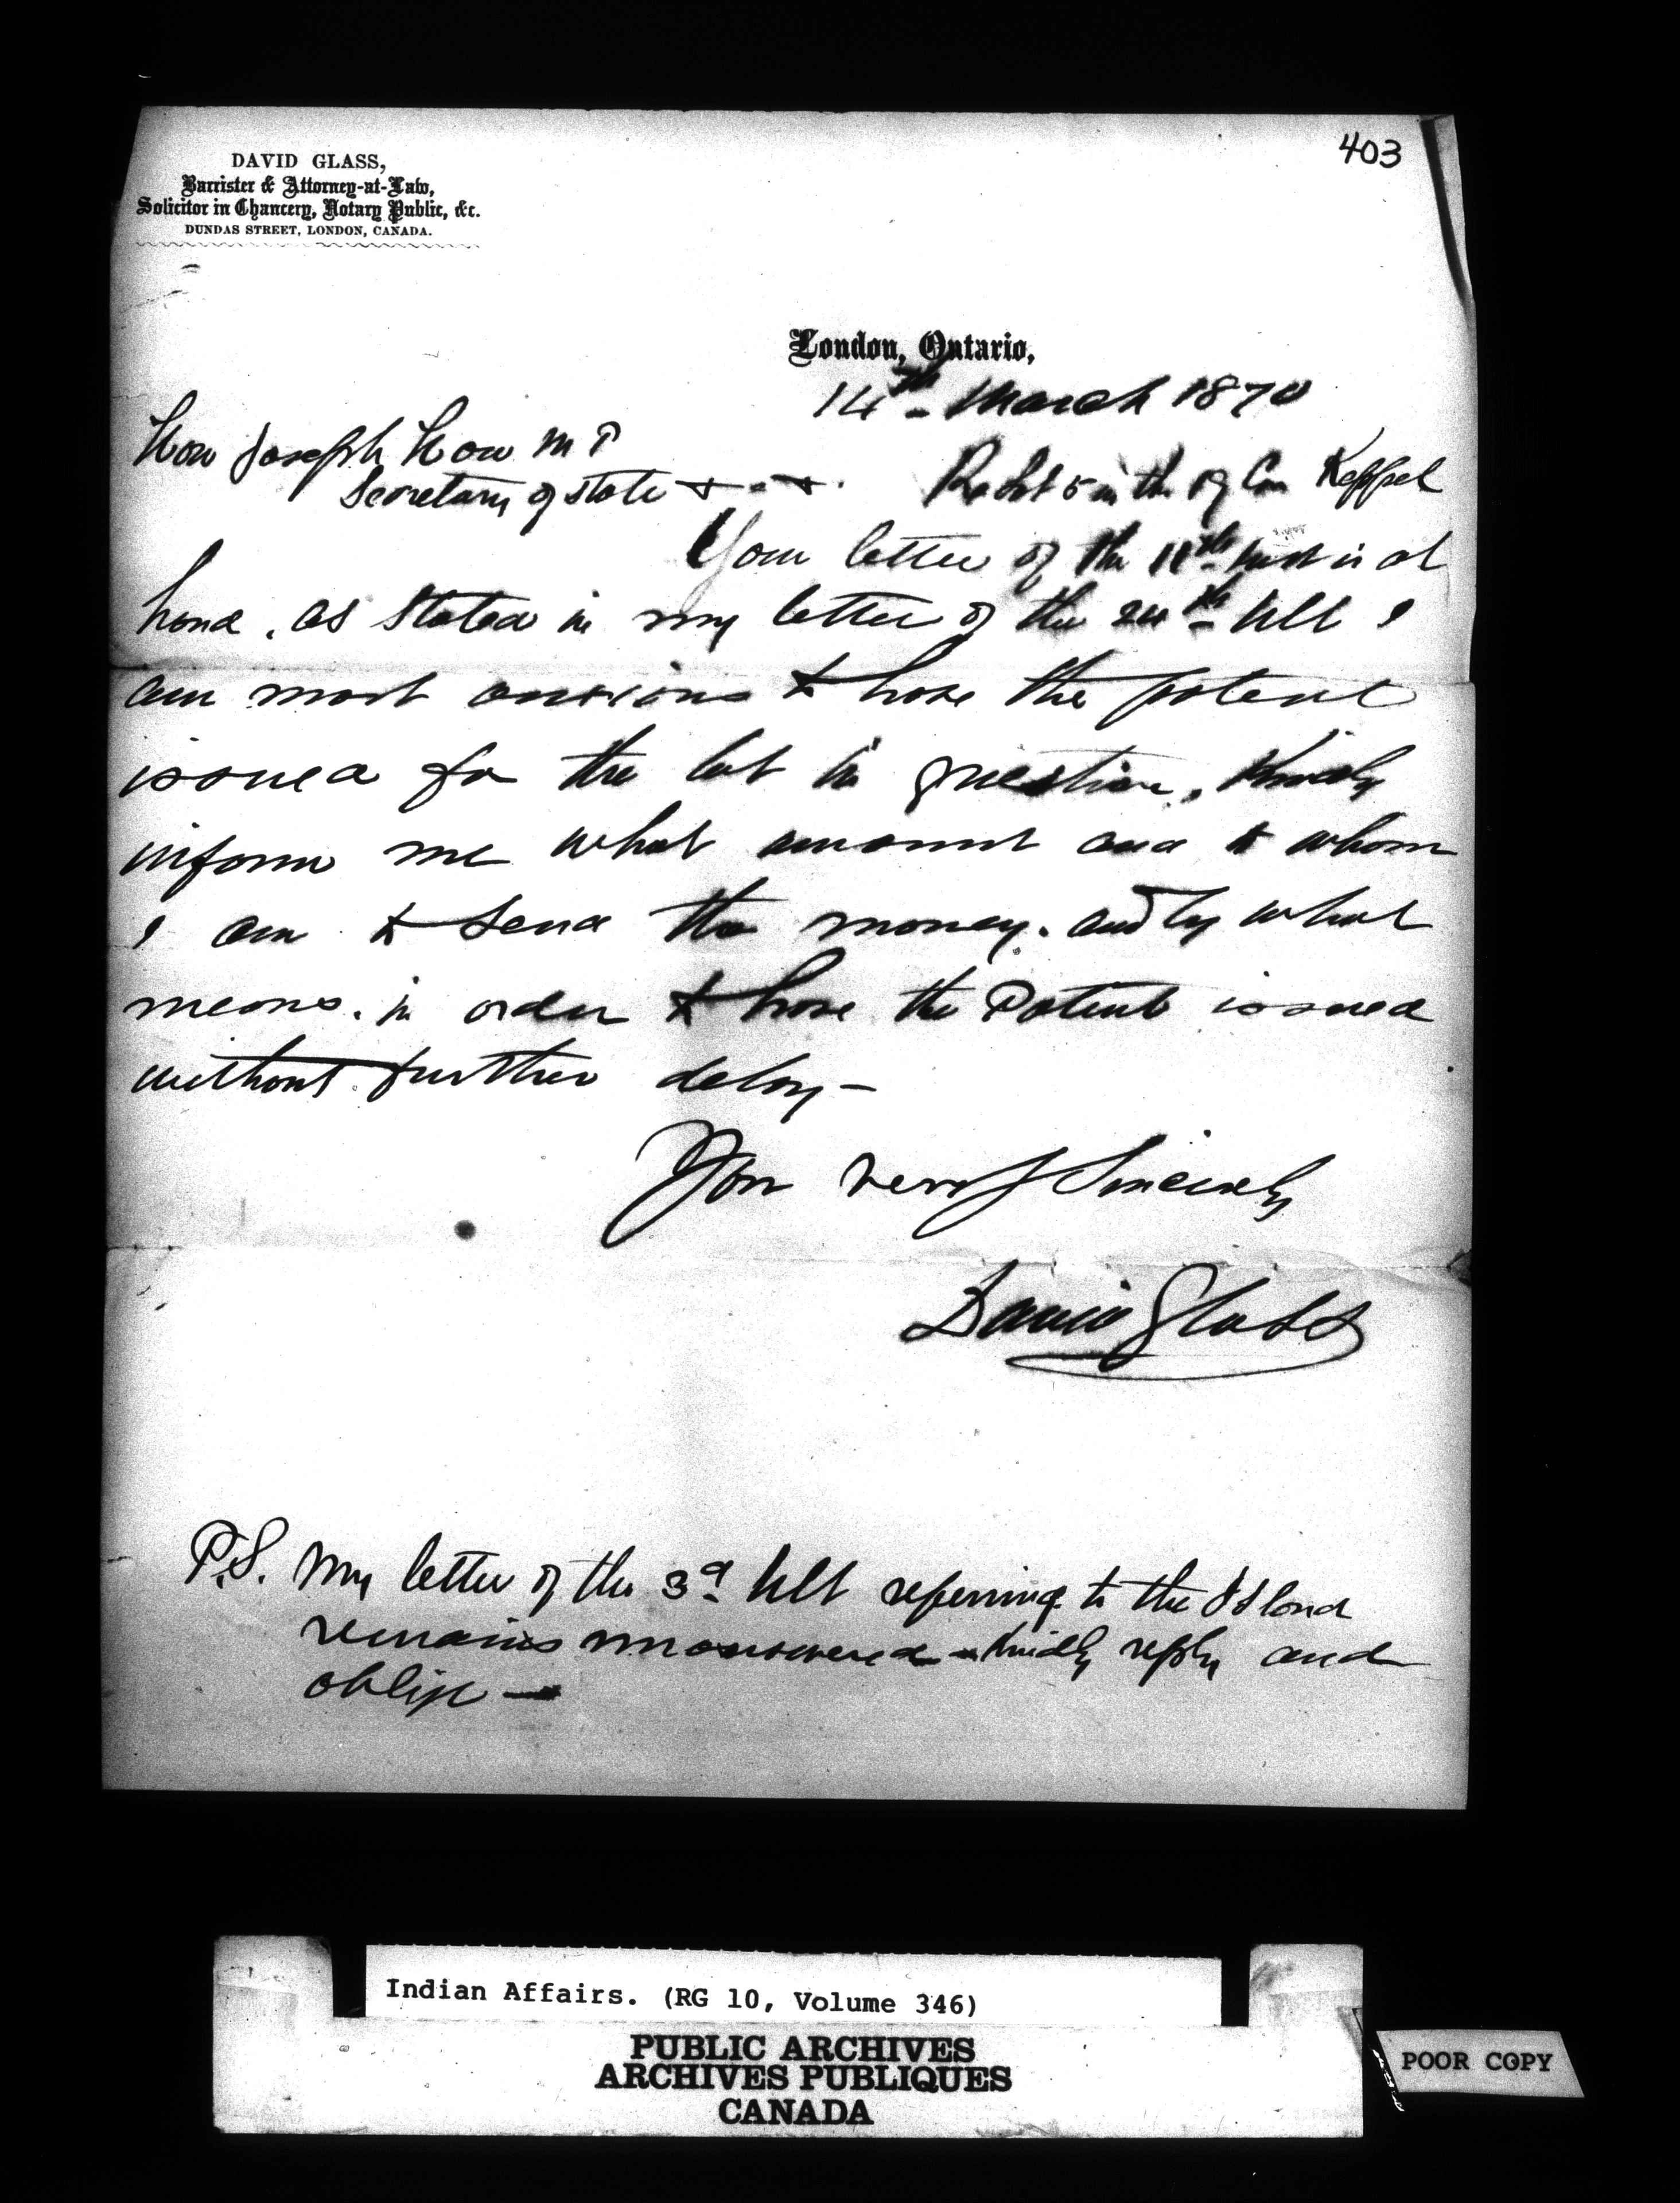 403
DAVID GLASS,
Barrister & Attorney-at-Law,
Solicitor in Chancery, Notary Public, &c.
DUNDAS STREET, LONDON, CANADA.
London, Ontario,
14th March 1870
Hon Joseph Howe M P
Secretary of State
Re Lot 5 in the Con Keppel
Your letter of the 11th inst is at
hand. As stated in my letter of the 24th Ult I
am most anxious to have the patent
issued for the lot in question. Kindly
inform me what amount and to whom
I am to send the money. and by what
means. in order to have the Patent issued
without further delay –
Your very Sincerely
David Glass
P.S. My letter of the 3d Ult referring to the Island
remains unanswered – kindly reply and
oblige –
Indian Affairs. (RG 10, Volume 346)
PUBLIC ARCHIVES
ARCHIVES PUBLIQUES
CANADA
POOR COPY